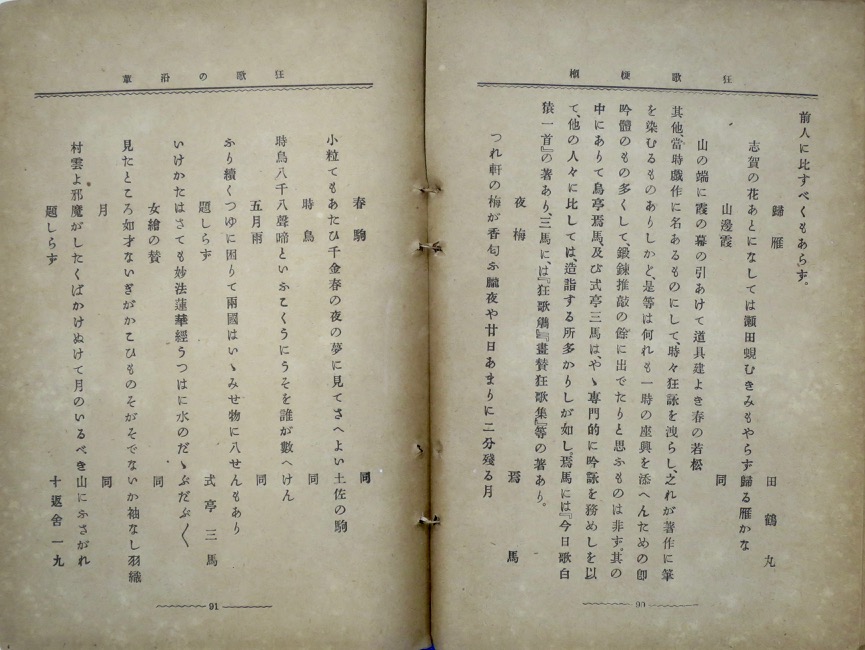 狂歌梗槪
前人に比すべくもあらず。
歸雁　田鶴丸
志賀の花あとになしては瀬田蜆むきみもやらず歸る雁かな
山邊霞　同
山の端に霞の幕の引あけて道具建よき春の若松
其他、當時戯作に名あるものにして、時々狂詠を洩らし、之れが著作に筆
を染むるものありしかど、是等は何れも一時の座興を添へんための卽
吟體のもの多くして鍛錬推敲の餘に出でたりと思ふものは非ず。其の
中にありて烏亭焉馬、及び式亭三馬は、やゝ専門的に吟詠を務めしを以
て、他の人々に比しては、造詣する所多かりしが如し。焉馬には『今日歌白
猿一首』の著あり、三馬に、は『狂歌觽』『畫賛狂歌集』等の著あり。
夜梅　焉馬
つれ軒の梅が香匂ふ朧夜や廿日あまりに二分殘る月
90
狂歌の沿革
春駒　同
小粒てもあたひ千金春の夜の夢に見てさへよい土佐の駒
時鳥　同
時鳥八千八聲啼といふこくうにうそを誰が數へけん
五月雨　同
ふり續くつゆに困りて兩國はいゝみせ物に八せんもあり
題しらず　式亭三馬
いけかたはさても妙法蓮華經うつはに水のだゝぶだぶ〱
女繪の賛　同
見たところ如才ないぎがかこひものそがそでないか袖なし羽織
月　同
村雲よ邪魔がしたくばかけぬけて月のいるべき山にふさがれ
題しらず　十返舍一九
91